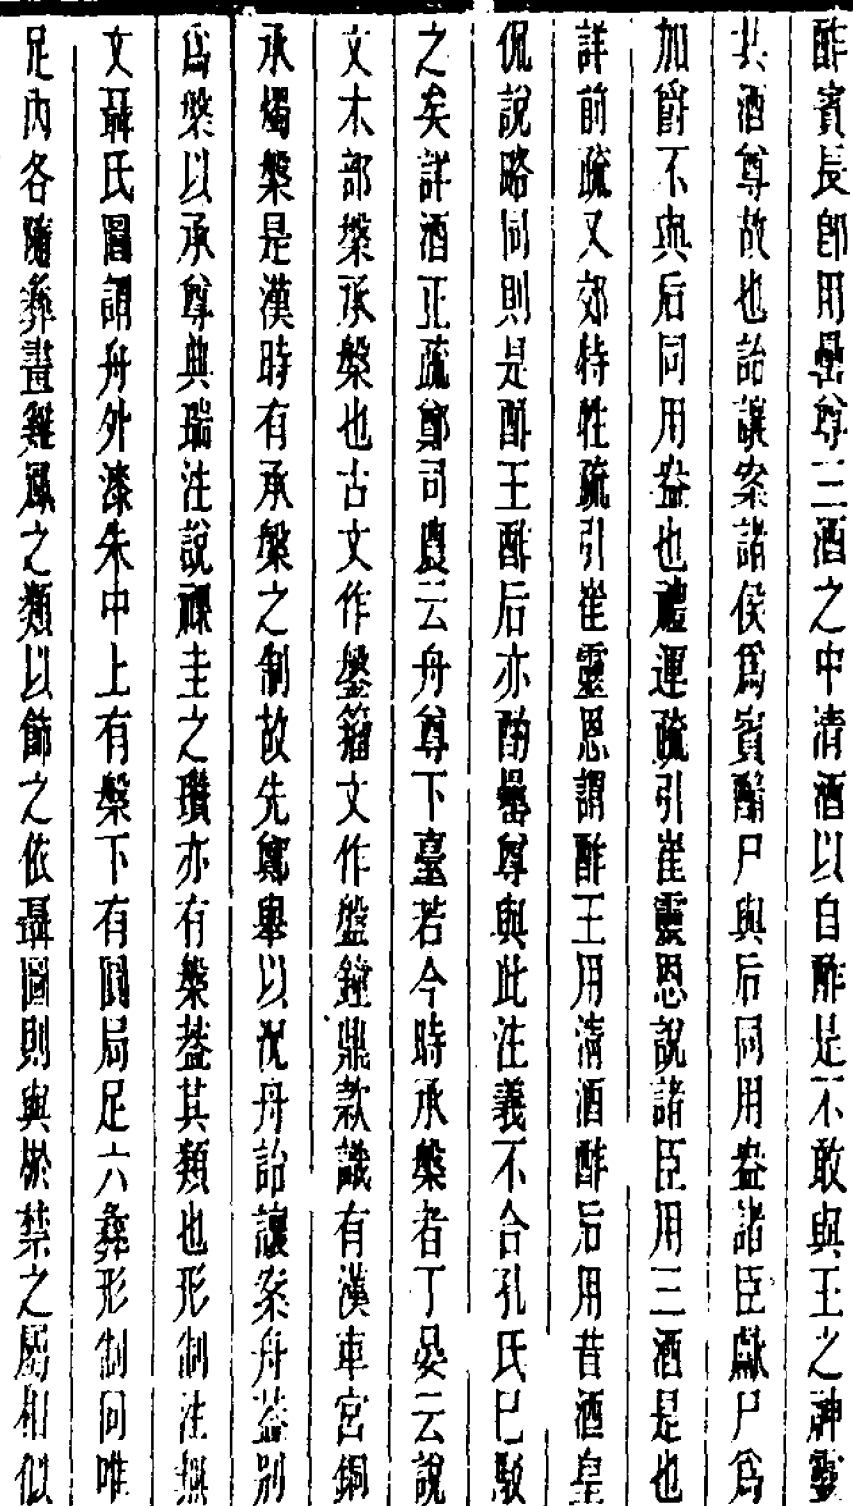 酢賓長卽用罍尊三酒之中清酒以自酢是不敢與王之神靈
共酒尊故也詒讓案諸侯爲賓酳尸與后同用盎諸臣獻尸爲
加爵不與后同用盎也禮運疏引崔靈恩說諸臣用三酒是也
詳前疏又郊特牲疏引崔靈恩謂酢王用清酒酢后用昔酒皇
侃說略同則是酳王酢后亦酌罍尊與此注義不合孔氏已駁
之矣詳酒正疏鄭司農云舟尊下臺若今時承槃者丁晏云說
文木部槃承槃也古文作鎜籀文作盤鐘鼎款識有漢車宮銅
承燭槃是漢時有承槃之制故先鄭舉以況舟詒讓案舟蓋別
爲槃以承尊典瑞注說祼圭之瓚亦有槃葢其類也形制注無
文聶氏圖謂舟外漆朱中上有槃下有圓局足六彝形制同唯
足內各隨彝畫雞鳳之類以飾之依聶圖則與棜禁之屬相似